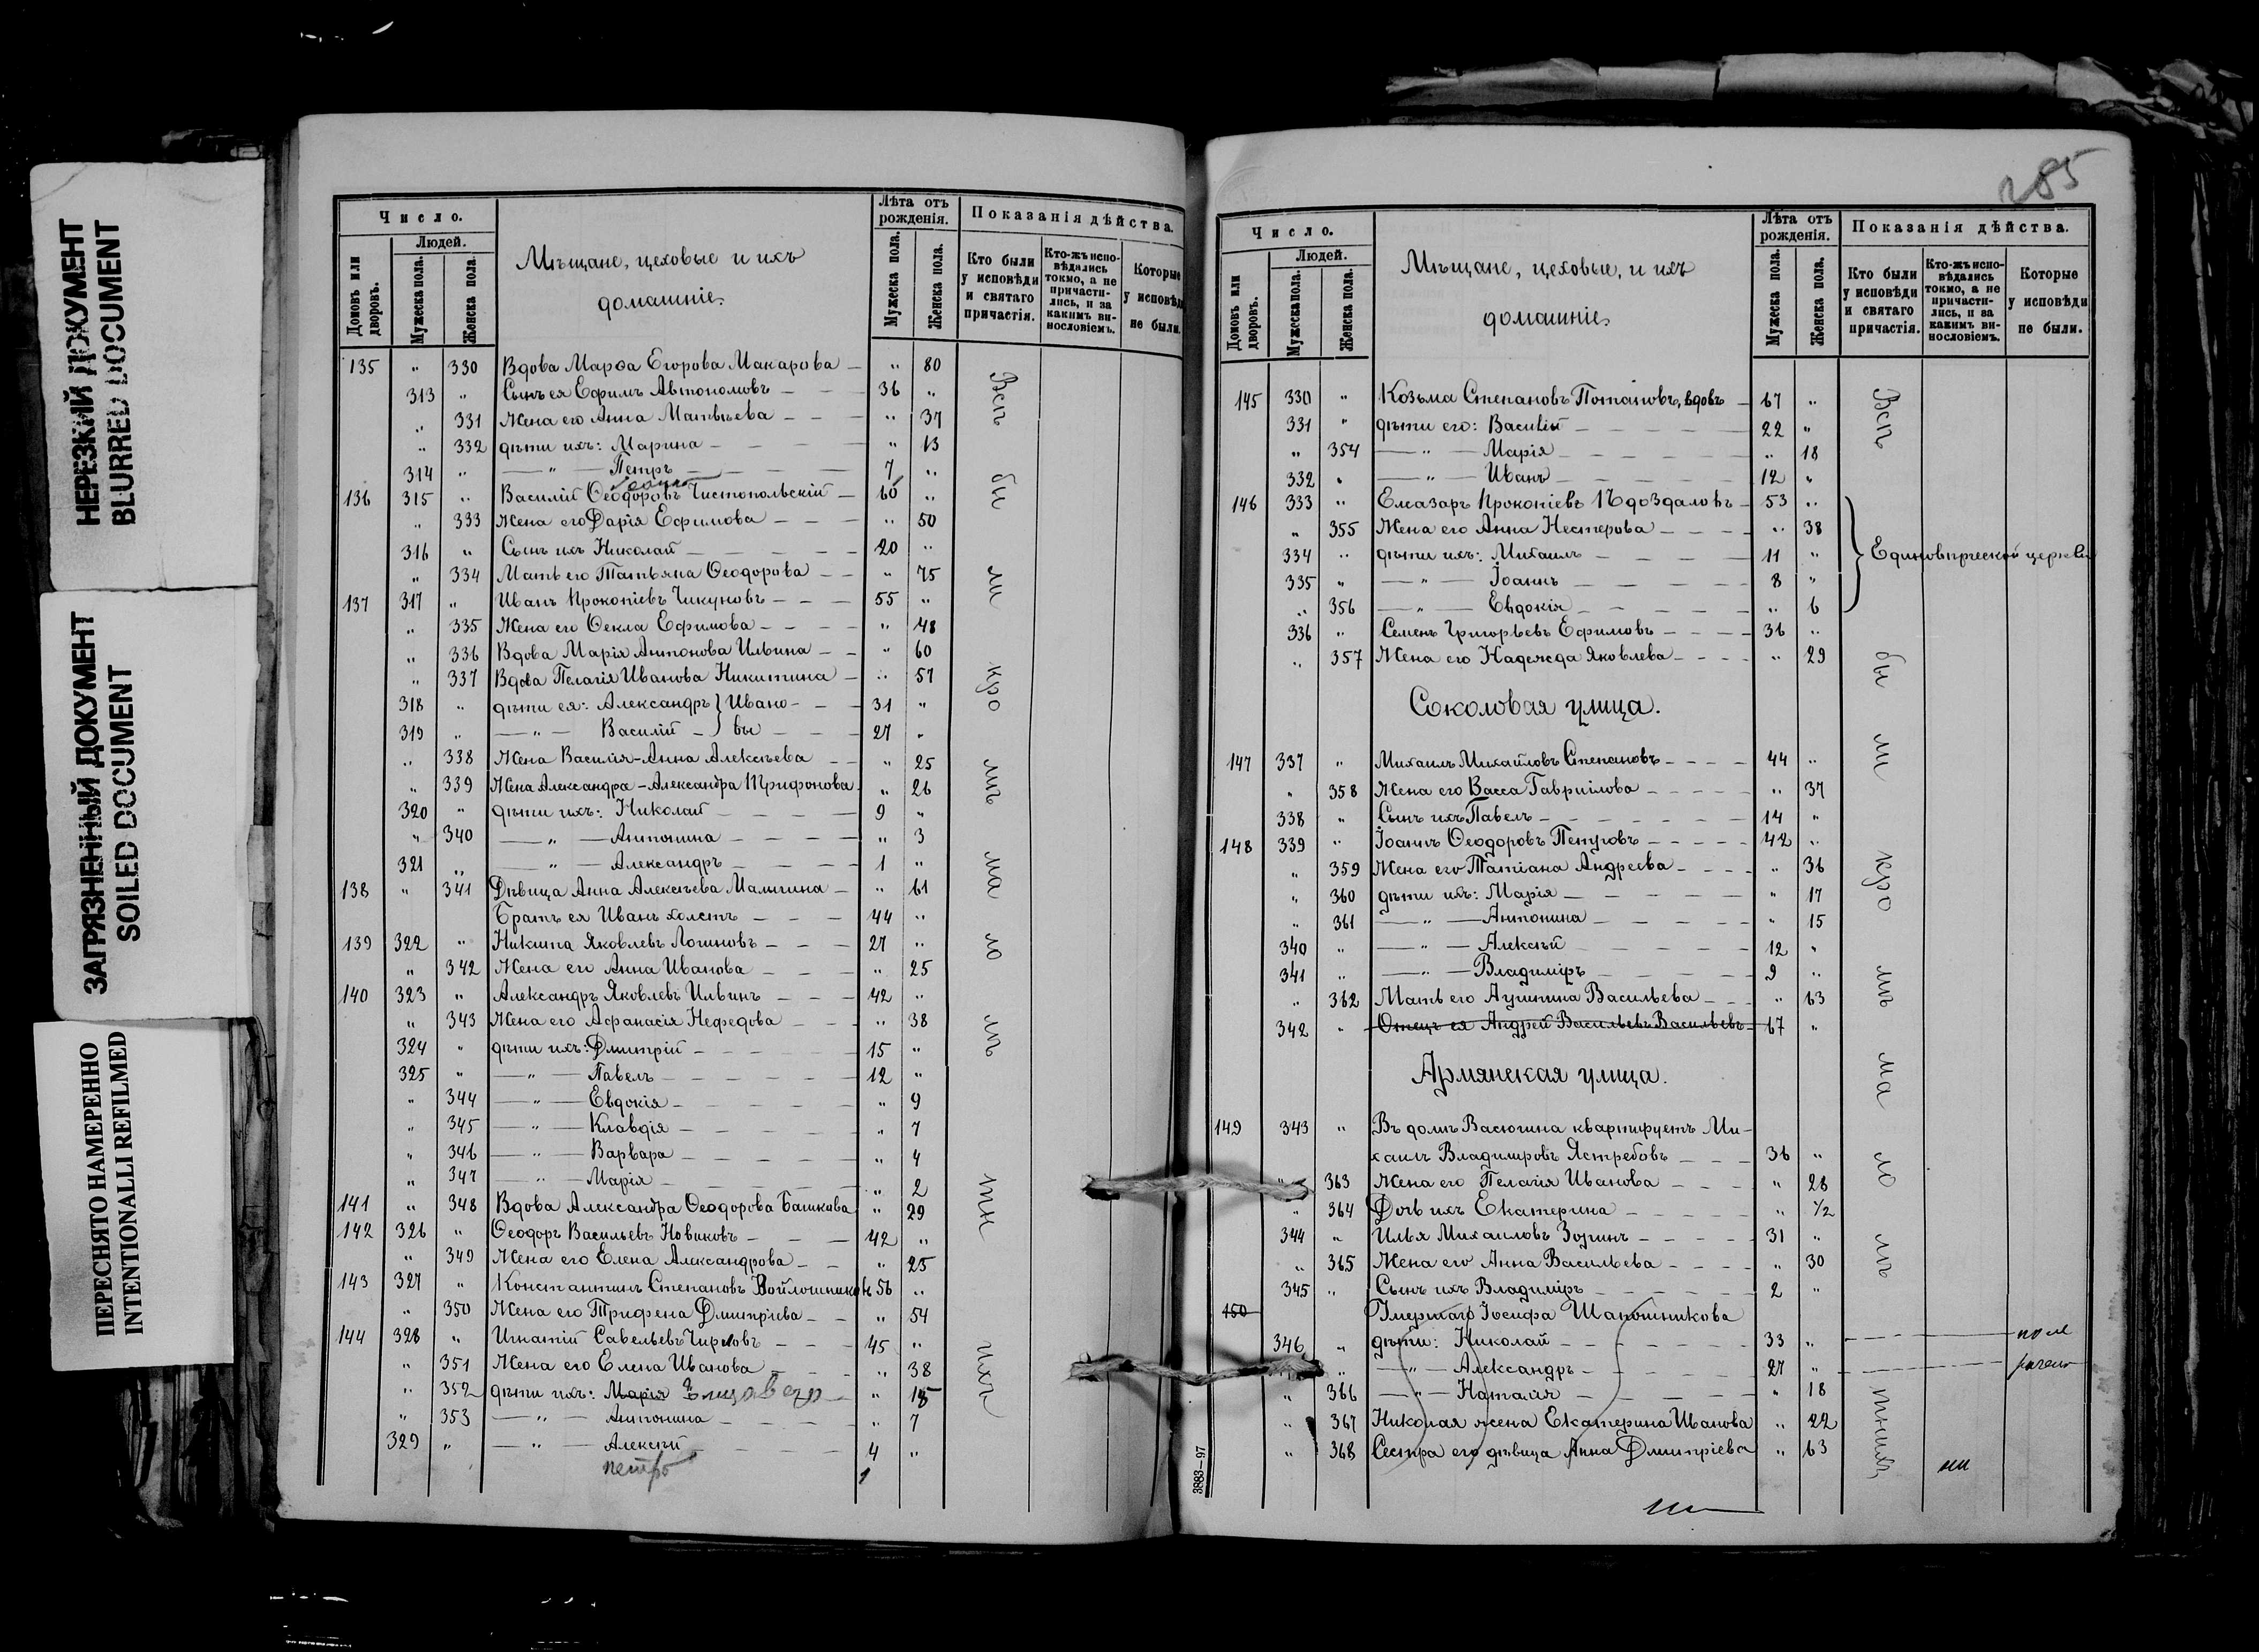 НЕРЕЗКИЙ ДОКУМЕНТ
BLURRED DOCUMENT
ЗАГРЯЗНЕННЫЙ ДОКУМЕНТ
SOILED DOCUMENT
ПЕРЕСНЯТО НАМЕРЕННО
INTENTIONALLI REFILMED
Число.
Людей.
Домовъ или дворовъ.
Мужеска пола.
Женска пола.
Мѣщане, цеховые и ихъ
домашніе.
Лѣта отъ рожденія.
Мужеска пола.
Женска пола.
Показанія дѣйства.
Кто были у исповѣди и святаго причастія.
Кто-жъ исповѣдались токмо, а не причастились, и за какимъ винословіемъ.
Которые у исповѣди не были.
135 „ 330 Вдова Марѳа Егорова Макарова — „ 80
313 „ Сынъ ея Ефимъ Автономовъ — 36 „
„ 331 Жена его Анна Матвѣева — „ 37
„ 332 дѣти ихъ: Марина — „ 13
314 „ — „ — Петръ — 7 „
136 315 „ Василій Ѳеодоровъ Чистопольскій — 60 „
„ 333 Жена его Дарія Ефимова — „ 50
316 „ Сынъ ихъ Николай — 20 „
„ 334 Мать его Татьяна Ѳеодорова — „ 75
137 317 „ Иванъ Прокопіевъ Чикуновъ — 55 „
„ 335 Жена его Ѳекла Ефимова — „ 48
„ 336 Вдова Марія Антонова Ильина — „ 60
„ 337 Вдова Пелагія Иванова Никитина — „ 57
318 „ дѣти ея: Александръ } Ивано- — 31 „
319 „ — „ — Василій — } вы — 27 „
„ 338 Жена Василія - Анна Алексѣева — „ 25
„ 339 Жена Александра - Александра Трифонова „ 26
320 „ дѣти ихъ: Николай — 9 „
„ 340 — „ — Антонина — „ 3
321 „ — „ — Александръ — 1 „
138 „ 341 Дѣвица Анна Алексѣева Малыгина — „ 61
Братъ ея Иванъ холостъ — 44 „
139 322 „ Никита Яковлевъ Логиновъ — 27 „
„ 342 Жена его Анна Иванова — „ 25
140 323 „ Александръ Яковлевъ Ильинъ — 42 „
„ 343 Жена его Афанасія Нефедова — „ 38
324 „ дѣти ихъ: Дмитрій — 15 „
325 „ — „ — Павелъ — 12 „
„ 344 — „ — Евдокія — „ 9
„ 345 — „ — Клавдія — „ 7
„ 346 — „ — Варвара — „ 4
„ 347 — „ — Марія — „ 2
141 „ 348 Вдова Александра Ѳеодорова Башкова „ 29
142 326 „ Ѳеодоръ Васильевъ Новиковъ — 42 „
„ 349 Жена его Елена Александрова — „ 25
143 327 „ Константинъ Степановъ Войлошниковъ 56 „
„ 350 Жена его Трифена Дмитріева — „ 54
144 328 „ Игнатій Савельевъ Чирковъ — 45 „
„ 351 Жена его Елена Иванова — „ 38
„ 352 дѣти ихъ: Марія Елизавета — „ 15
„ 353 — „ — Антонина — „ 7
329 „ — „ — Алексѣй — 4 „
Петръ 1
Всѣ
бы
ли
кро
мѣ
ма
ло
лѣ
тн
ихъ
285
Число.
Людей.
Домовъ или дворовъ.
Мужеска пола.
Женска пола.
Мѣщане, цеховые, и ихъ
домашніе.
Лѣта отъ рожденія.
Мужеска пола.
Женска пола.
Показанія дѣйства.
Кто были у исповѣди и святаго причастія.
Кто-жъ исповѣдались токмо, а не причастились, и за какимъ винословіемъ.
Которые у исповѣди не были.
145 330 „ Козьма Степановъ Потаповъ, вдовъ — 67 „
331 „ дѣти его: Василій — 22 „
„ 354 — „ — Марія — „ 18
332 „ — „ — Иванъ — 12 „
146 333 „ Елеазаръ Прокопіевъ — 53 „
„ 355 Жена его Анна Нестерова — „ 38
334 „ дѣти ихъ: Михаилъ — 11 „
Единовѣрческой церкви
335 „ — „ — Іоаннъ — 8 „
„ 356 — „ — Евдокія — „ 6
336 „ Семенъ Григорьевъ Ефимовъ — 36 „
„ 357 Жена его Надежда Яковлева — „ 29
Соколовая улица.
147 337 „ Михаилъ Михайловъ Степановъ — 44 „
„ 358 Жена его Васса Гавріилова — „ 37
338 „ Сынъ ихъ Павелъ — 14 „
148 339 „ Іоаннъ Ѳеодоровъ Петровъ — 42 „
„ 359 Жена его Татіана Андреева — „ 36
„ 360 дѣти ихъ: Марія — „ 17
„ 361 — „ — Антонина — „ 15
340 „ — „ — Алексѣй — 12 „
341 „ — „ — Владиміръ — 9 „
„ 362 Мать его Васильева — „ 63
342 „ Отецъ ея Андрей Васильевъ Васильевъ — 67 „
Армянская улица.
149 343 „ Въ домѣ Васюгина квартируетъ Ми-
хаилъ Владиміровъ Ястребовъ — 36 „
„ 363 Жена его Пелагія Иванова — „ 28
„ 364 Дочь ихъ Екатерина — „ 1/2
344 „ Илья Михаиловъ Зоринъ — 31 „
„ 365 Жена его Анна Васильева — „ 30
345 „ Сынъ ихъ Владиміръ — 2 „
150 Умершаго Іосифа Шапошникова
346 „ дѣти: Николай — 33 „
„ — „ — Александръ — 27 „
„ 366 — „ — Наталія — „ 18
„ 367 Николая жена Екатерина Иванова „ 22
„ 368 Сестра его дѣвица Анна Дмитріева „ 63
Всѣ
бы
ли
кро
мѣ
ма
ло
лѣ
тнихъ
3883—97